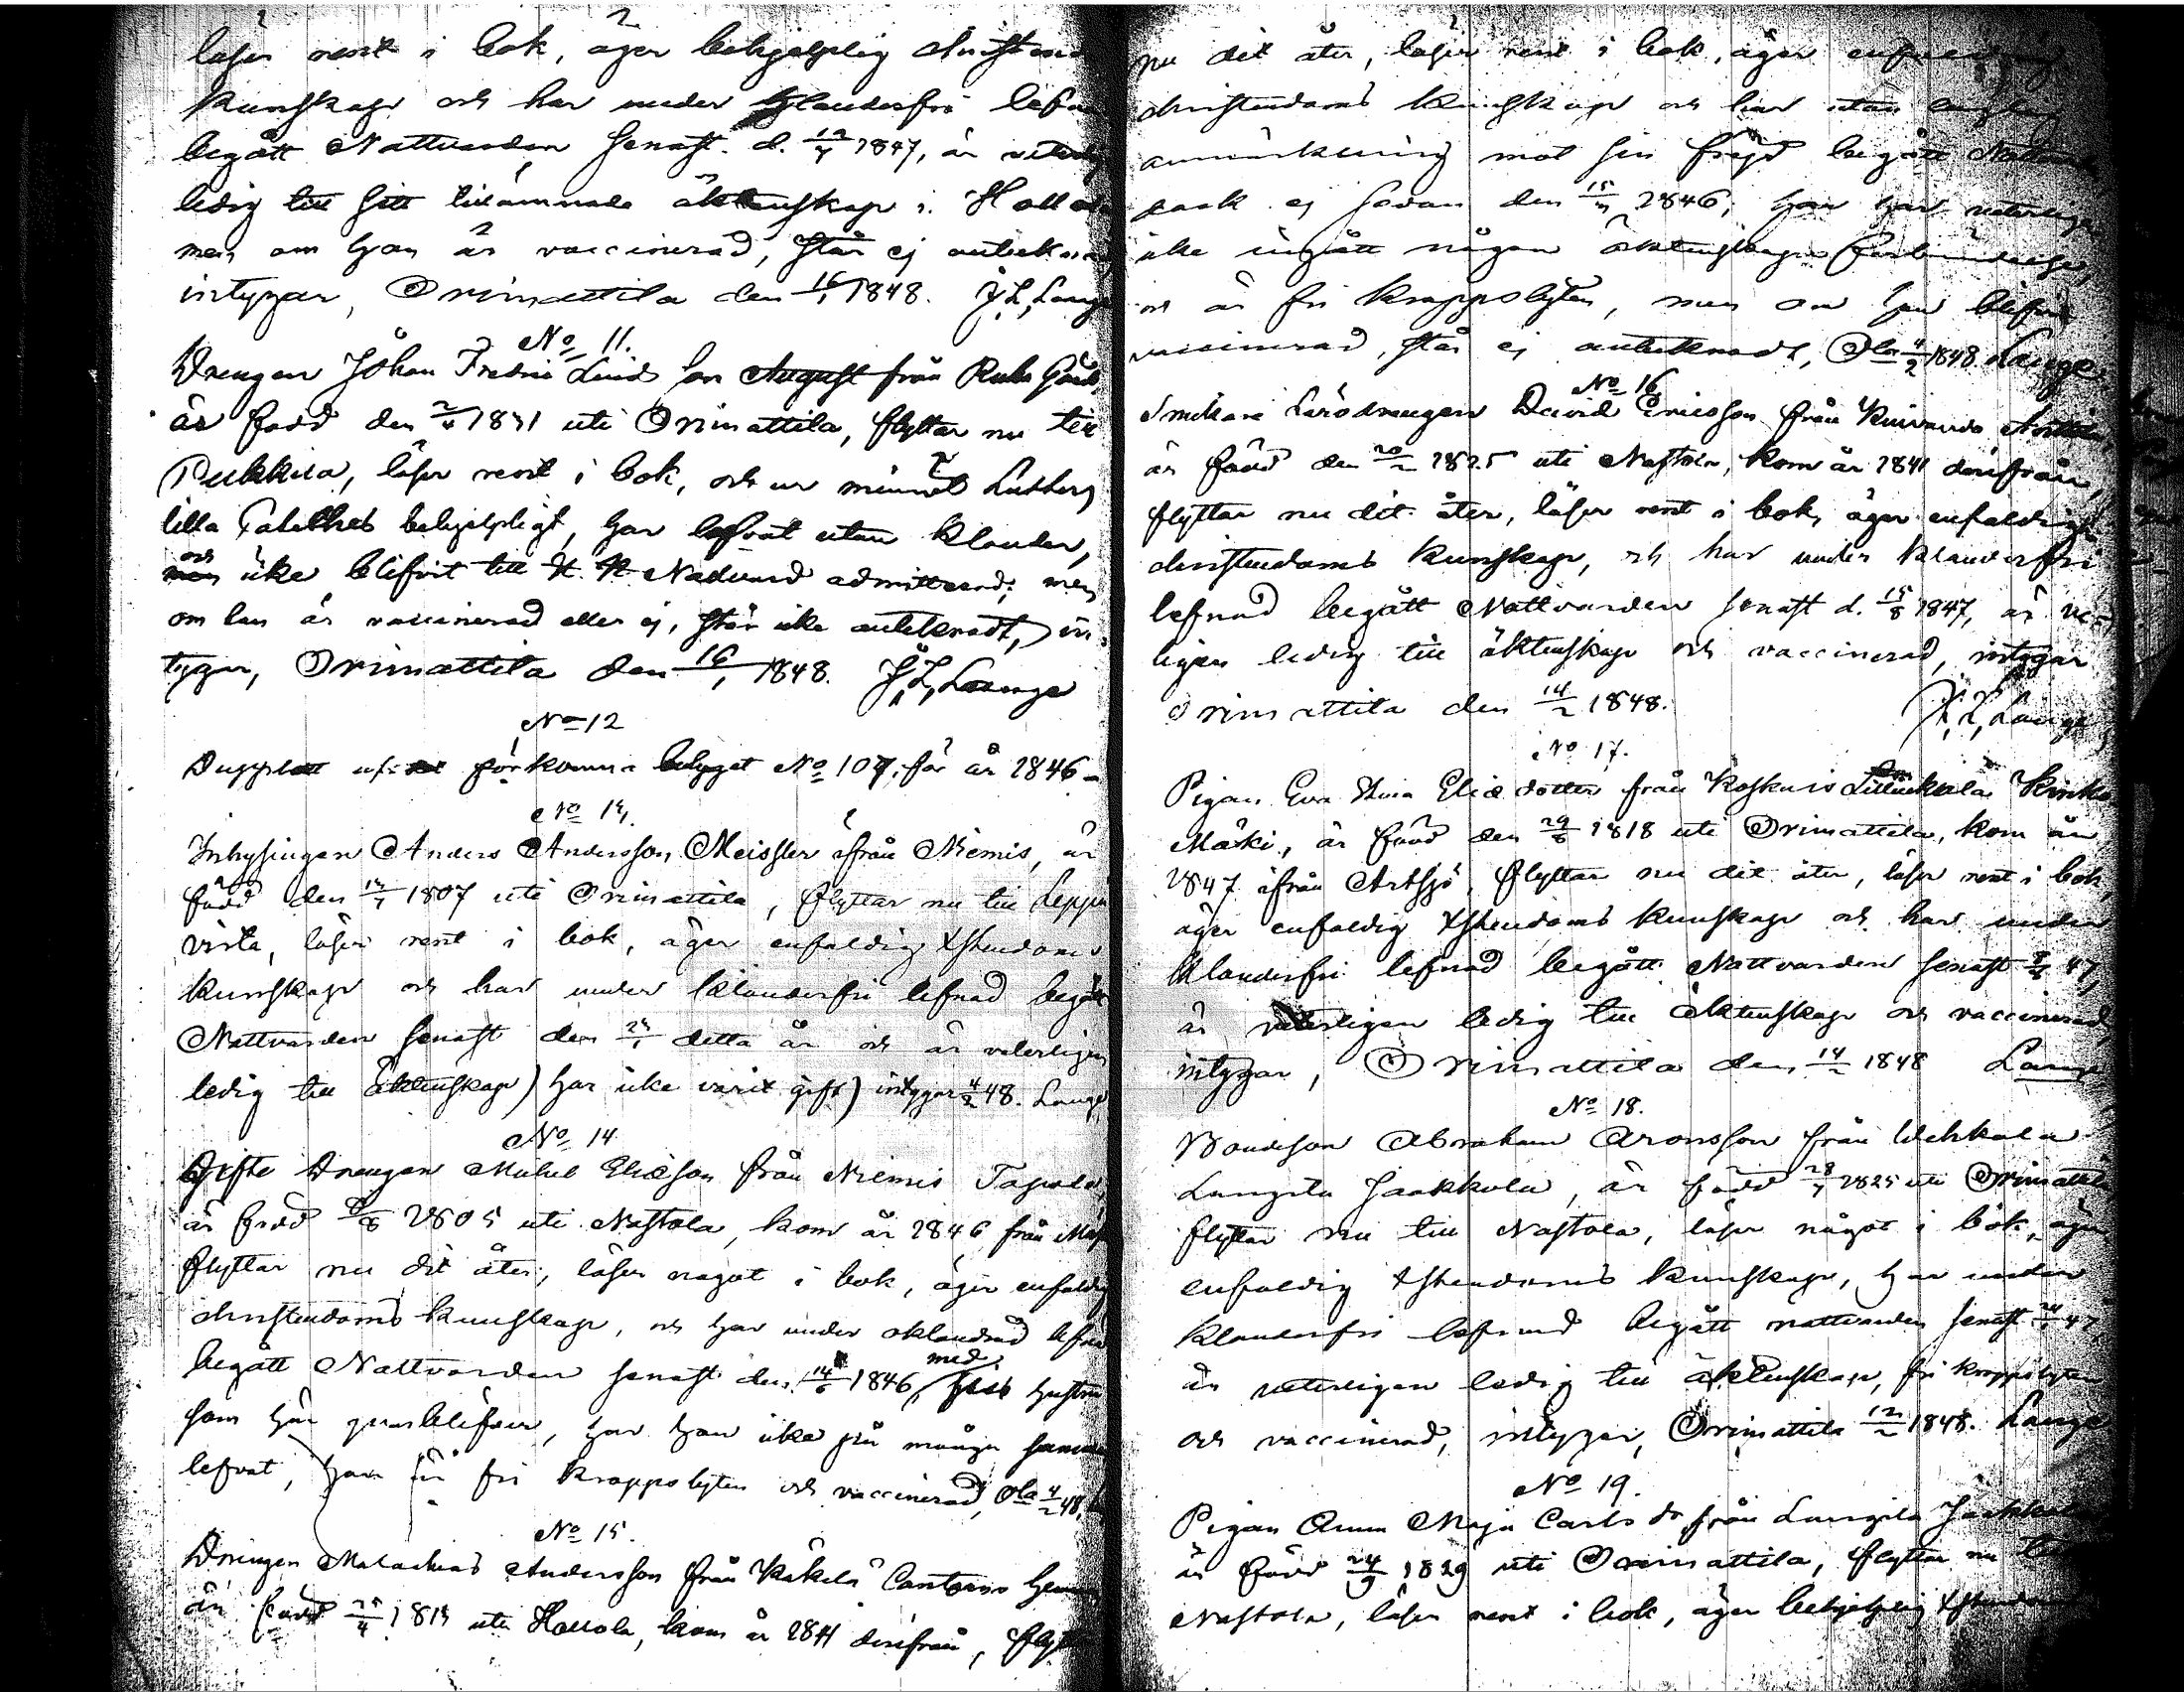 läser rent i bok, äger behjelplig christend
kunskap och har under klanderfri lefn
begått Nattvarden senast d. 1847, är veterlig
ledig till sitt tillämnade äktenskap i Hollola
men om han är vaccinerad, står ej anteknad
intygar, Orimattila den 16/1 1848. J. Z. Lange
No 11.
Drengen Johan Fredric Lind son August från Ruha Gård,
är född den 1831 uti Orimattila, flyttar nu till
Pukkila, läser rent i bok, och ur minnet Lutheri
lilla Cateches behjelpligt, har lefvat utan klander,
och icke blifvit till H. H. Nadvard admitterad; men
om han är vaccinerad eller ej, står icke anteknadt, in-
tygar, Orimattila den 16/1 1848. J. Z. Lange
No 12
Dupplett utaf förkomna betyget No 107 för år 1846
No 13.
Inhysingen Anders Andersson Meissler ifrån Niemis, är
född den 1807 uti Orimattila, flyttar nu till Leppä
virta, läser rent i bok, äger enfaldig Xstendoms
kunskap och har under klanderfri lefnad begått
Nattvarden senast den detta år och är veterligen
ledig till äktenskap) har icke varit gift) intygar 4/2 48. Lange
No 14
Gifte Drengen Mickel Eliæson från Niemis Tapola,
är född 1805 uti Nastola, kom år 1846 från
flyttar nu dit åter, läser något i bok, äger enfaldig
christendoms kunskap, och har under oklandrad lefnad
begått Nattvarden senast den 14/6 1846, med sin hustru
som här qvarblifver, har han icke på många
lefvat, han är fri kroppslyten och vaccinerad, Ola 4/2 48.
No 15.
Drengen Malachias Andersson från Käkelä Cantorns
är född 1813 uti Hollola, kom år 1841 derifrån, flytt
nu dit åter, läser rent i bok, äger enfaldig
christendoms kunskap och har utan
anmärkning mot sin frejd begått Nattvard
dock ej sedan den 1846; han har veterligen
icke ingått någon äktenskaps förbindelse,
och är fri kroppslyten, men om han blifvit
vaccinerad, står ej anteknadt, Ola 4/2 1848. Lange
No 16
Smikare Lärodrengen David Ericsson från Kuivando
är född den 20/2 1825 uti Nastola, kom år 1841 derifrån,
flyttar nu dit åter, läser rent i bok, äger enfaldig
christendoms kunskap, och har under klanderfri
lefnad begått Nattvarden senast d. 15/8 1847, är veter
ligen ledig till äktenskap och vaccinerad, intygar
Orimattila den 14/2 1848. J. Z. Lange
No 17.
Pigan Eva Stina Eliæ dotter från Koskuis
Mäki, är född den 29/8 1818 uti Orimattila, kom år
1847 ifrån Artsjö, flyttar nu dit åter, läser rent i bok,
äger enfaldig Xstendoms kunskap och har under
klanderfri lefnad begått Nattvarden senast 47,
är veterligen ledig till äktenskap och vaccinerad,
intygar, Orimattila den 14/2 1848 Lange
No 18.
Bondeson Abraham Aronsson från Wirkkala
Langila Jaakkola, är född 28/7 1825 uti Orimattila
flyttar nu till Nastola, läser något i bok, äger
enfaldig Xstendoms kunskap, har under
klanderfri lefnad begått nattvarden senast 47,
är veterligen ledig till äktenskap, fri kroppslyten
och vaccinerad, intygar, Orimattila 12/2 1848. Lange
No 19.
Pigan Anna Maja Carls dr från Langila Jaakkola
är född 24/9 1829 uti Orimattila, flyttar nu till
Nastola, läser rent i bok, äger behjelplig Xstendoms